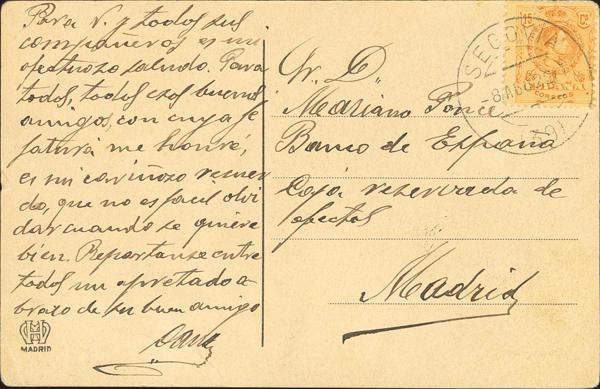 Para V. y todos sus
compañeros es mi
afectuoso saludo. Para
todos, todos esos buenos
amigos, con cuya je
fatura me honré,
es mi cariñoso recuer
do, que no es facil olvi
dar cuando se quiere
bien. Repartanse entre
todos un apretado a
brazo de su buen amigo
MADRID
Sr. D.
Mariano Ponce
Banco de España
Caja reservada de
efectos
Madrid
15 Cs.
SEGOVIA
CORREOS